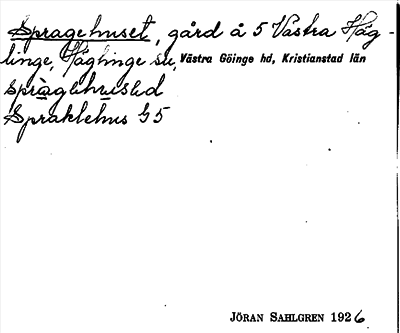 Spragehuset, gård å 5 Västra Häg-
linge, Häglinge sn, Västra Göinge hd, Kristianstad län
språglehusled
Spraklehus G5
JÖRAN SAHLGREN 1926